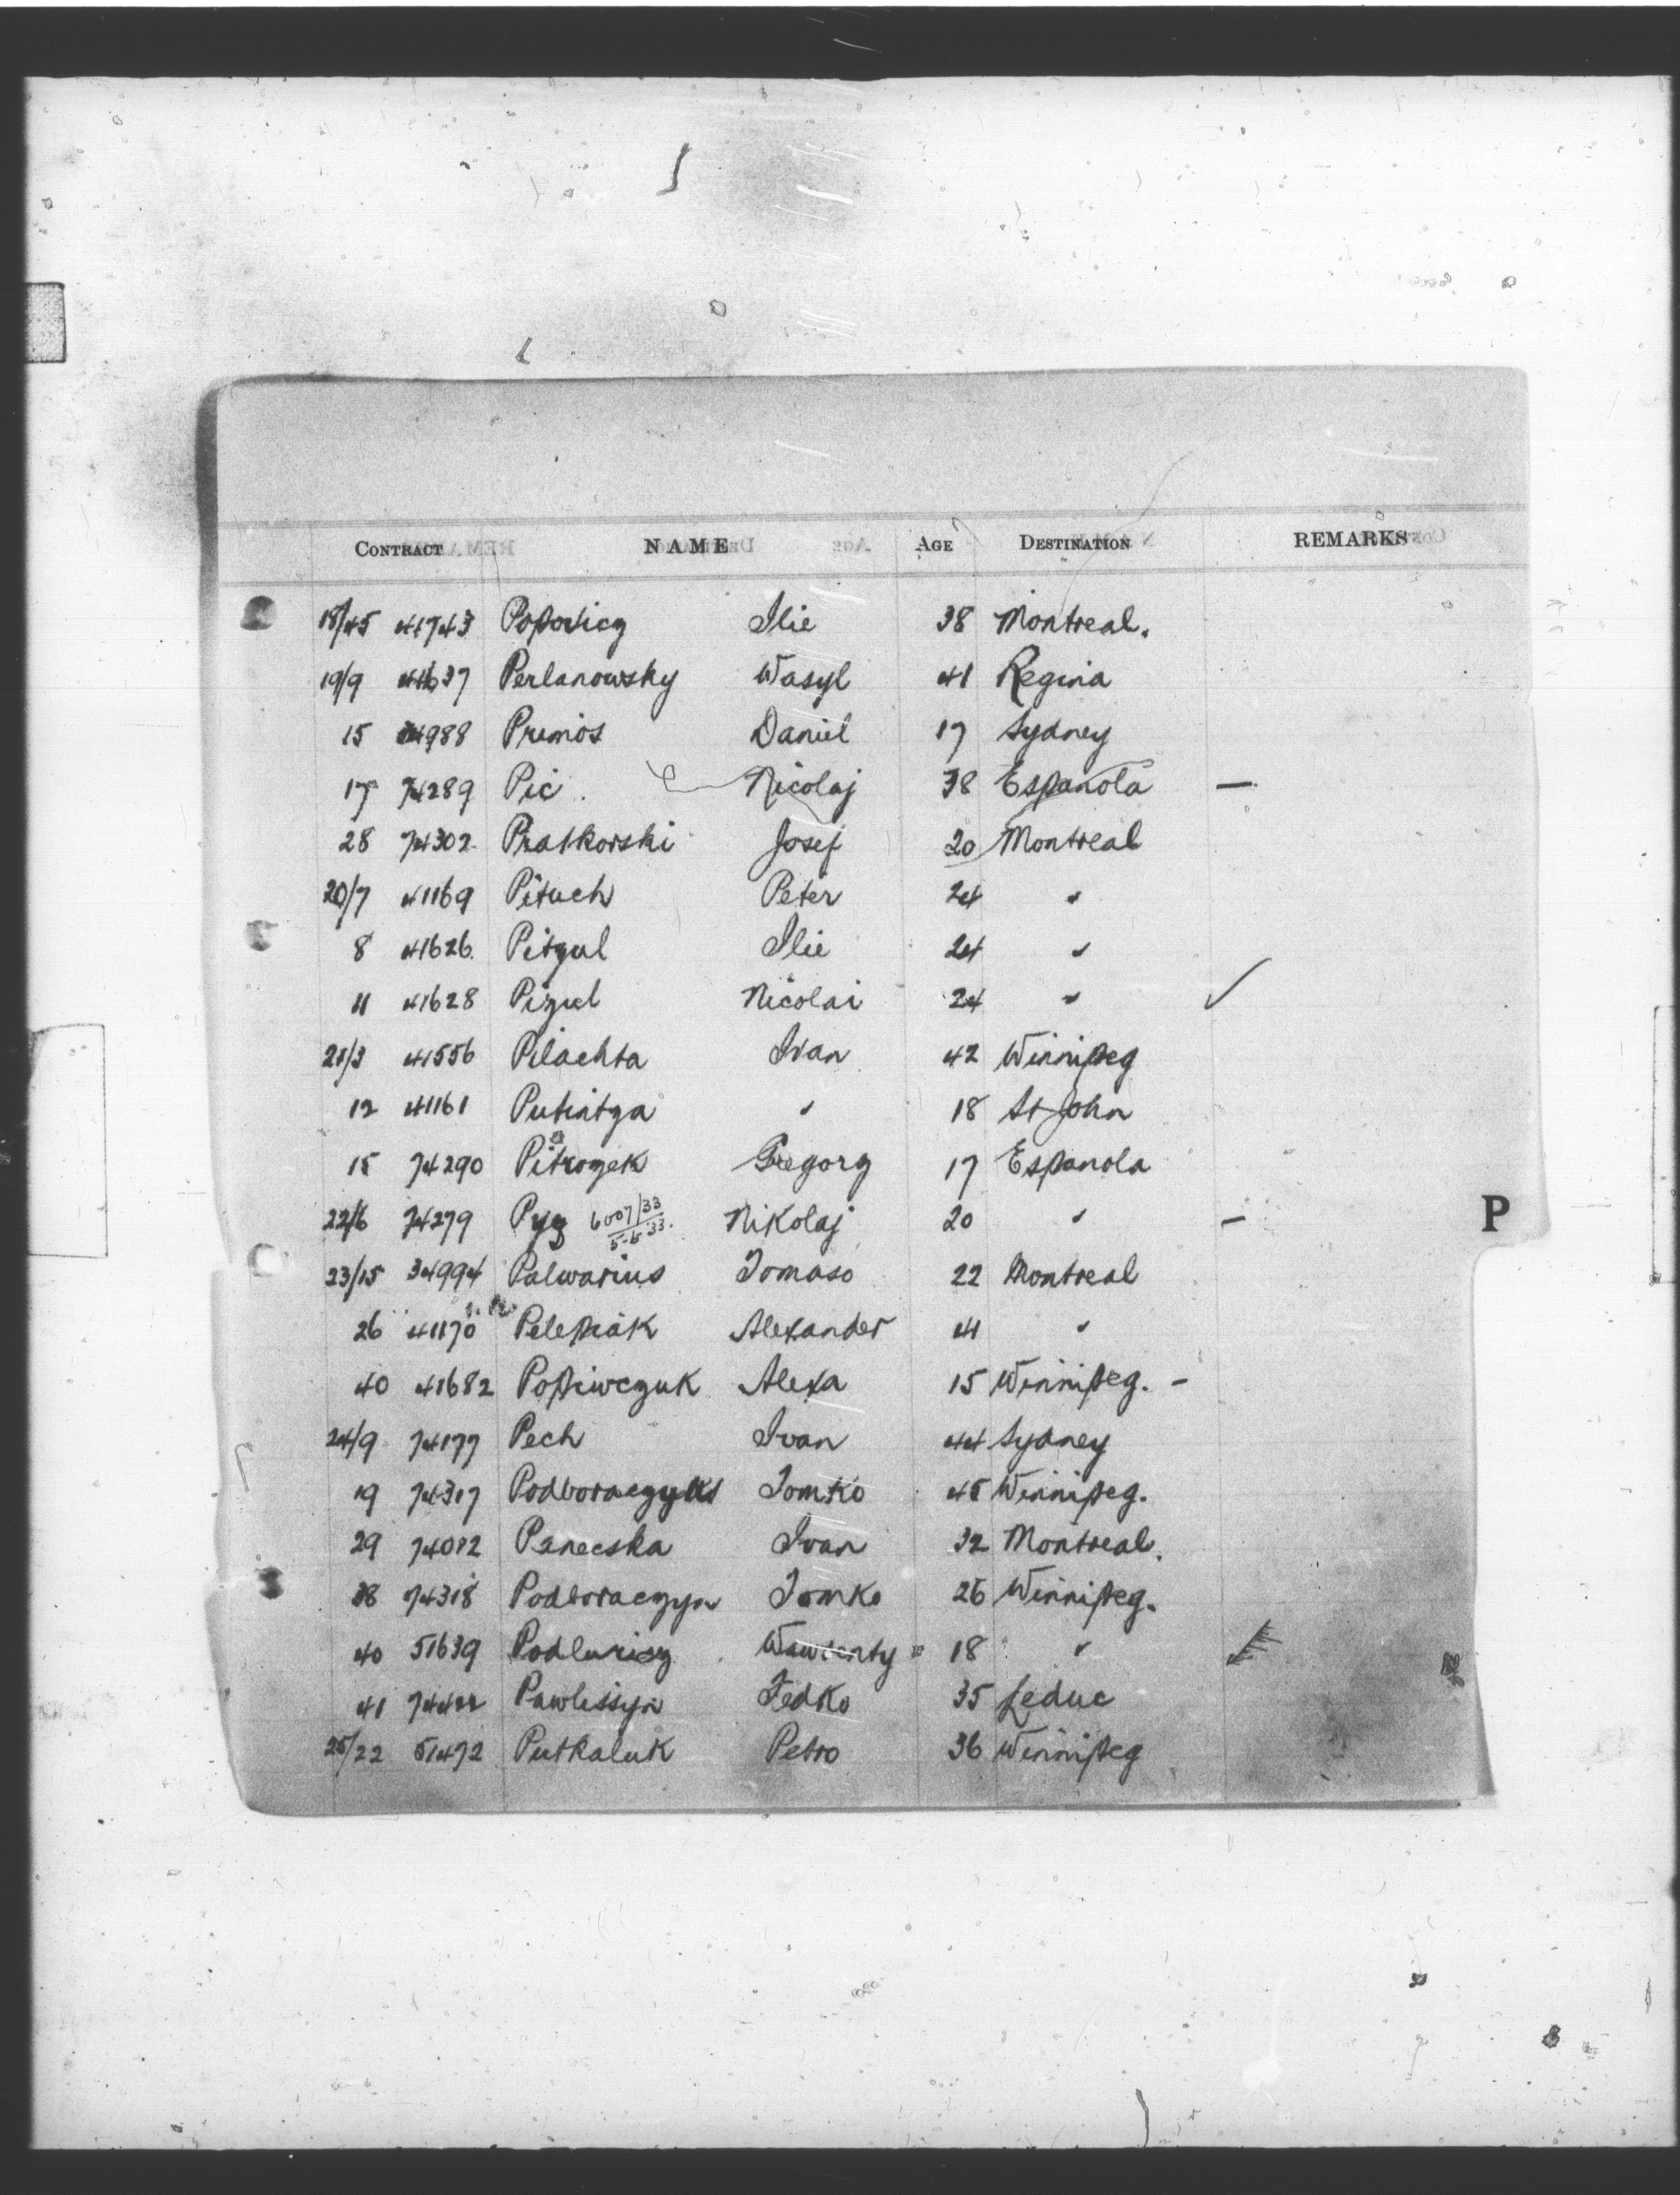 CONTRACT NAME AGE DESTINATION REMARKS
18/45 41743 Popovicz Ilie 38 Montreal.
19/9 41637 Perlanowsky Wasyl 41 Regina
15 34988 Premos Daniel 17 Sydney
17 74289 Pic. Nicolaj 38 Espanola —
28 74302 Pratkorski Josef 20 Montreal
20/7 41169 Pituch Peter 24 "
8 41626 Pitzul Ilie 24 "
11 41628 Pizul Nicolai 24 " ✓
21/3 41556 Pilachta Ivan 42 Winnipeg
12 41161 Putintza " 18 St John
15 74290 Pitrozek Gregorz 17 Espanola
22/6 74279 Pyz 6007/33 5-5-33. Nikolaj 20 " —
P
23/15 34994 Palwarius Tomaso 22 Montreal
26 41170 Pelepiak Alexander 41 "
40 41682 Popiwczuk Alexa 15 Winnipeg. -
24/9 74177 Pech Ivan 44 Sydney
19 74317 Tomko 45 Winnipeg.
29 74082 Panecska Ivan 32 Montreal.
38 74318 Podboraczyn Tomko 26 Winnipeg.
40 51639 Podlurisz Wawrenty 18 "
41 74422 Pawlissyn Fedko 35 Leduc
25/22 51472 Putkaluk Petro 36 Winnipeg